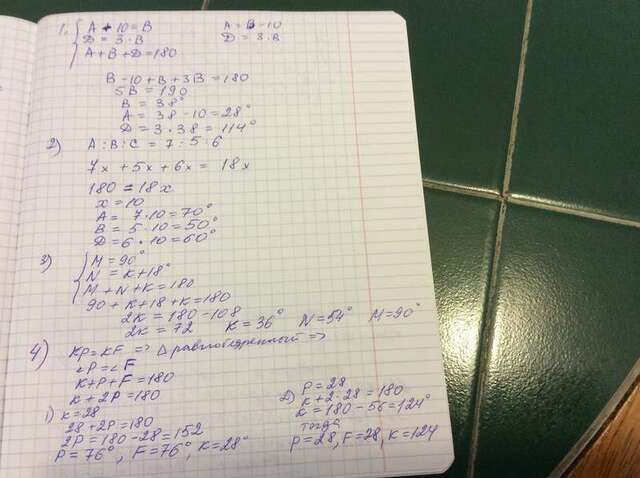 1. { A + 10 = B   A = B - 10
Д = 3 · B   Д = 3 · B
A + B + Д = 180
B - 10 + B + 3B = 180
5B = 190
B = 38°
A = 38 - 10 = 28°
Д = 3 × 38 = 114°
2) A : B : C = 7 : 5 : 6
7x + 5x + 6x = 18x
180 = 18x
x = 10
A = 7 · 10 = 70°
B = 5 · 10 = 50°
Д = 6 · 10 = 60°
3) { M = 90°
N = K + 18°
M + N + K = 180
90 + K + 18 + K = 180
2K = 180 - 108
2K = 72   K = 36°   N = 54°   M = 90°
4) KP = KF => Δ равнобедренный =>
∠P = ∠F
K + P + F = 180
K + 2P = 180
1) K = 28
28 + 2P = 180
2P = 180 - 28 = 152
P = 76°, F = 76°, K = 28°
2) P = 28
K + 2 · 28 = 180
K = 180 - 56 = 124°
тогда
P = 28, F = 28, K = 124